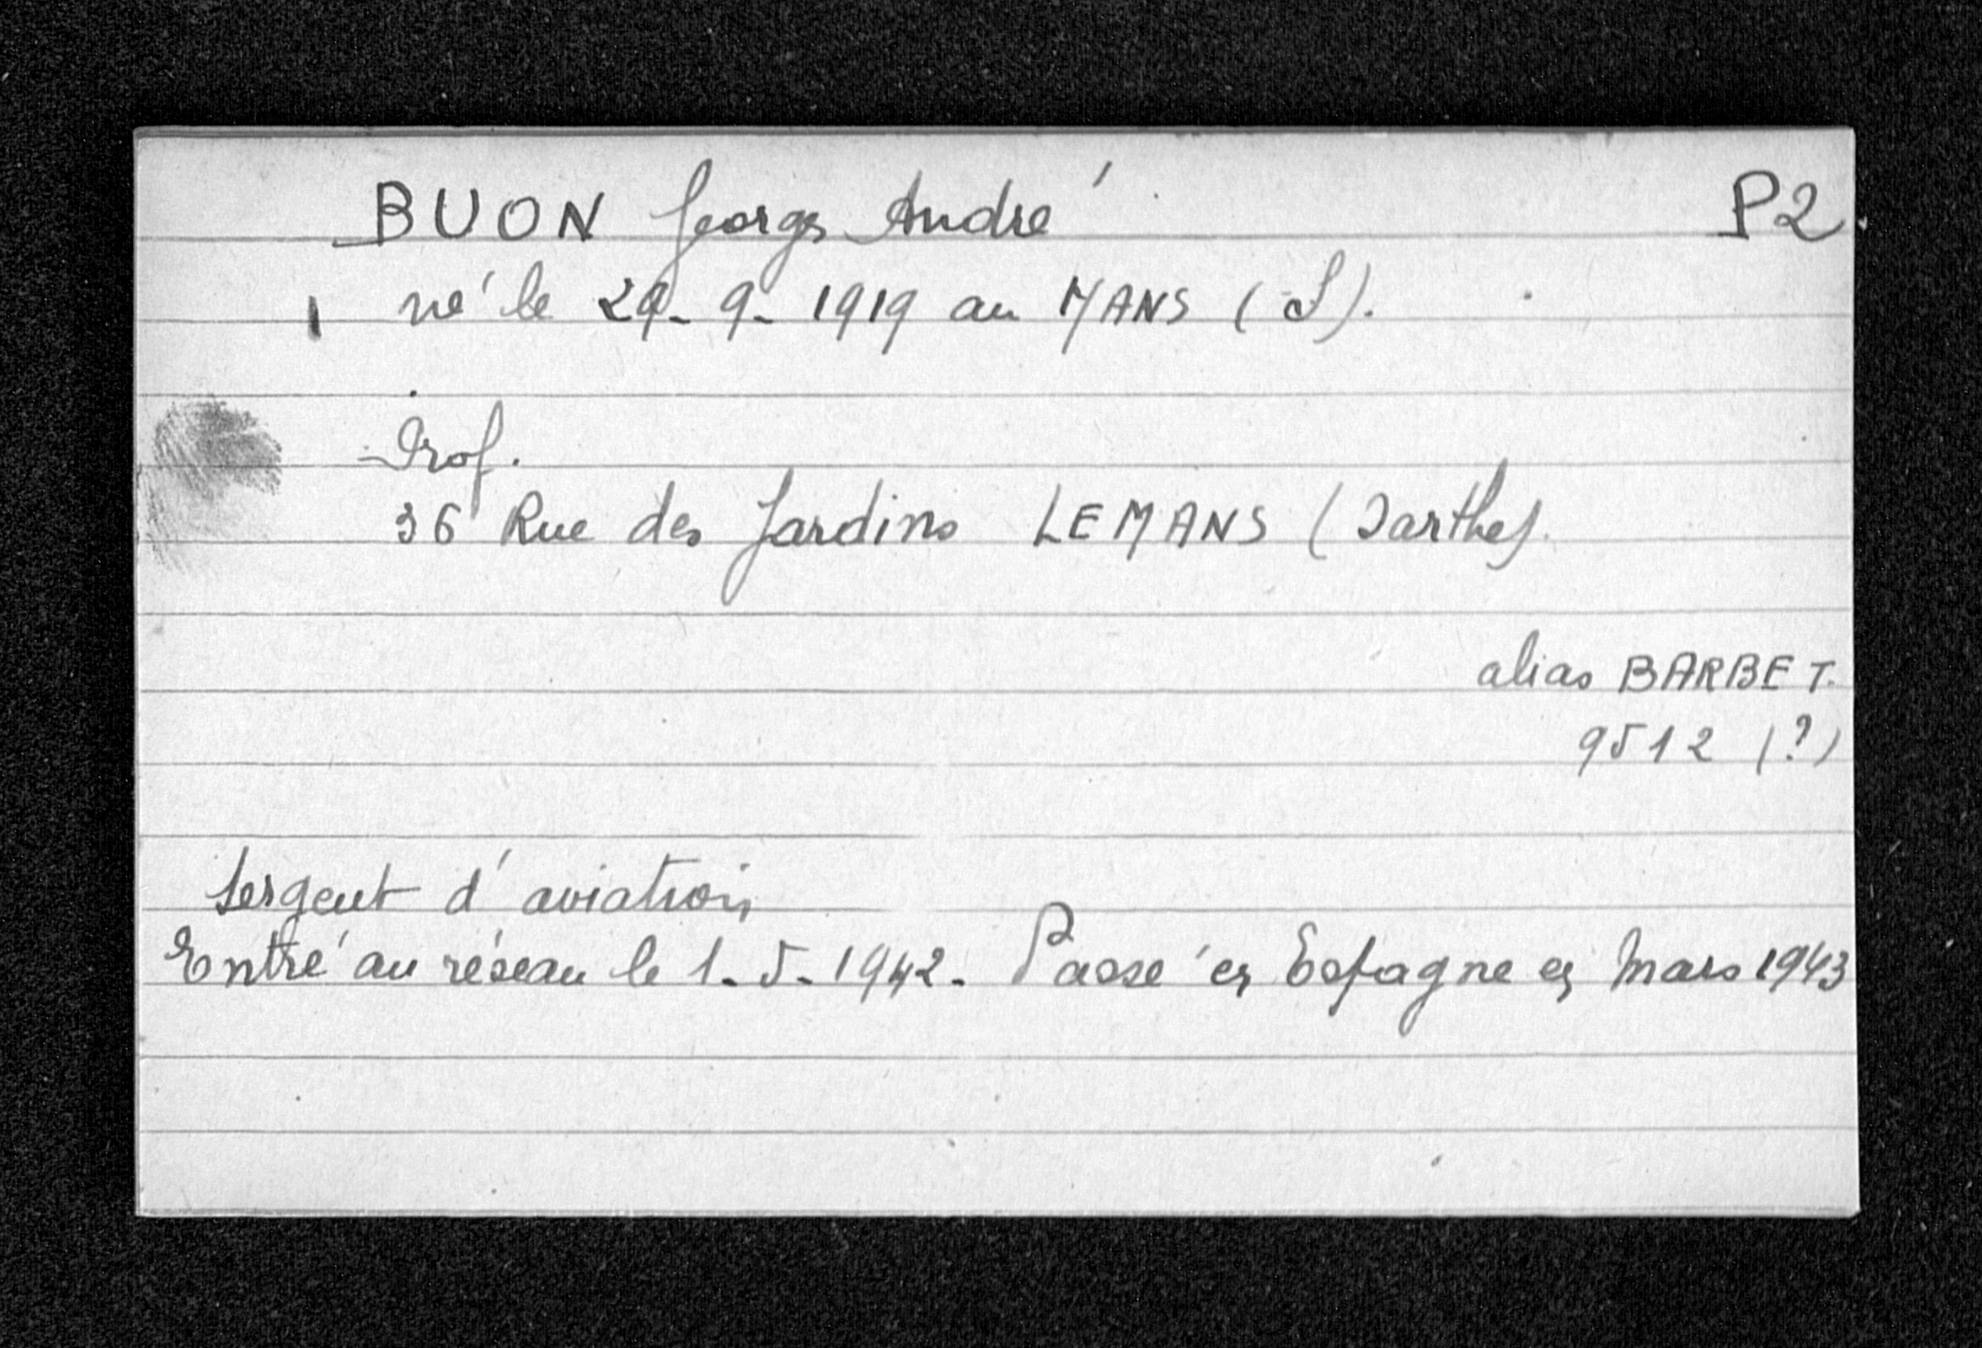 BUON Georges André P2
né le 29-9-1919 au MANS (S).
Prof.
36 Rue des Jardins LE MANS (Sarthe).
alias BARBET.
9512 (?)
Sergent d'aviation
Entré au réseau le 1-5-1942. Passé en Espagne en Mars 1943